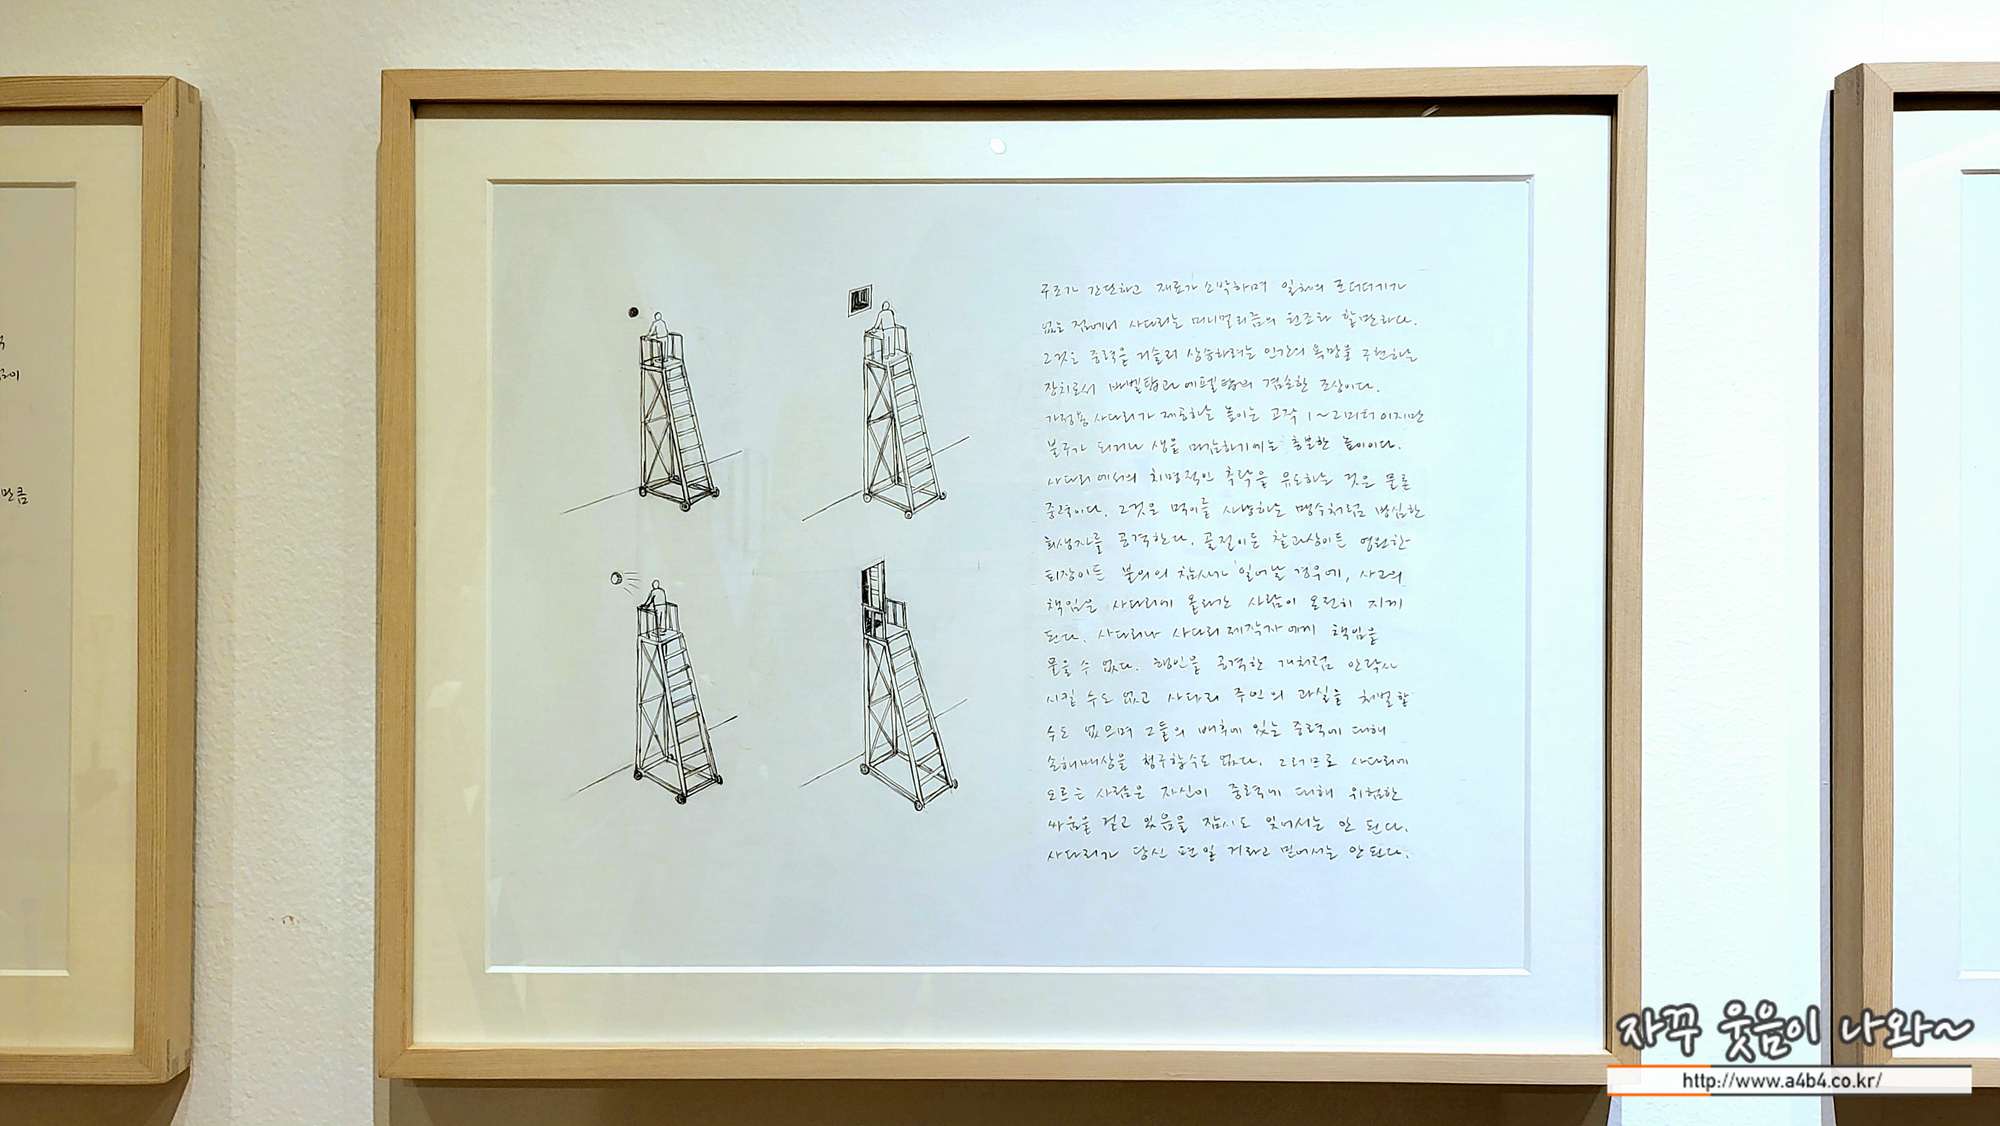 이
만큼
구조가 간단하고 재료가 소박하며 일체의 군더더기가
없는 점에서 사다리는 미니멀리즘의 원조라 할 만하다.
그것은 중력을 거슬러 상승하려는 인간의 욕망을 구현하는
장치로서 바벨탑과 에펠탑의 겸손한 조상이다.
가정용 사다리가 제공하는 높이는 고작 1~2미터 이지만
불구가 되거나 생을 마감하기에는 충분한 높이이다.
사다리에서의 치명적인 추락을 유도하는 것은 물론
중력이다. 그것은 먹이를 사냥하는 맹수처럼 방심한
희생자를 공격한다. 골절이든 찰과상이든 영원한
퇴장이든 불의의 참사가 일어날 경우에, 사고의
책임은 사다리에 올라간 사람이 온전히 지게
된다. 사다리나 사다리 제작자에게 책임을
물을 수 없다. 행인을 공격한 개처럼 안락사
시킬 수도 없고 사다리 주인의 과실을 처벌할
수도 없으며 그들의 배후에 있는 중력에 대해
손해배상을 청구할수도 없다. 그러므로 사다리에
오르는 사람은 자신이 중력에 대해 위험한
싸움을 걸고 있음을 잠시도 잊어서는 안 된다.
사다리가 당신 편일 거라고 믿어서는 안된다.
자꾸 웃음이 나와~
http://www.a4b4.co.kr/